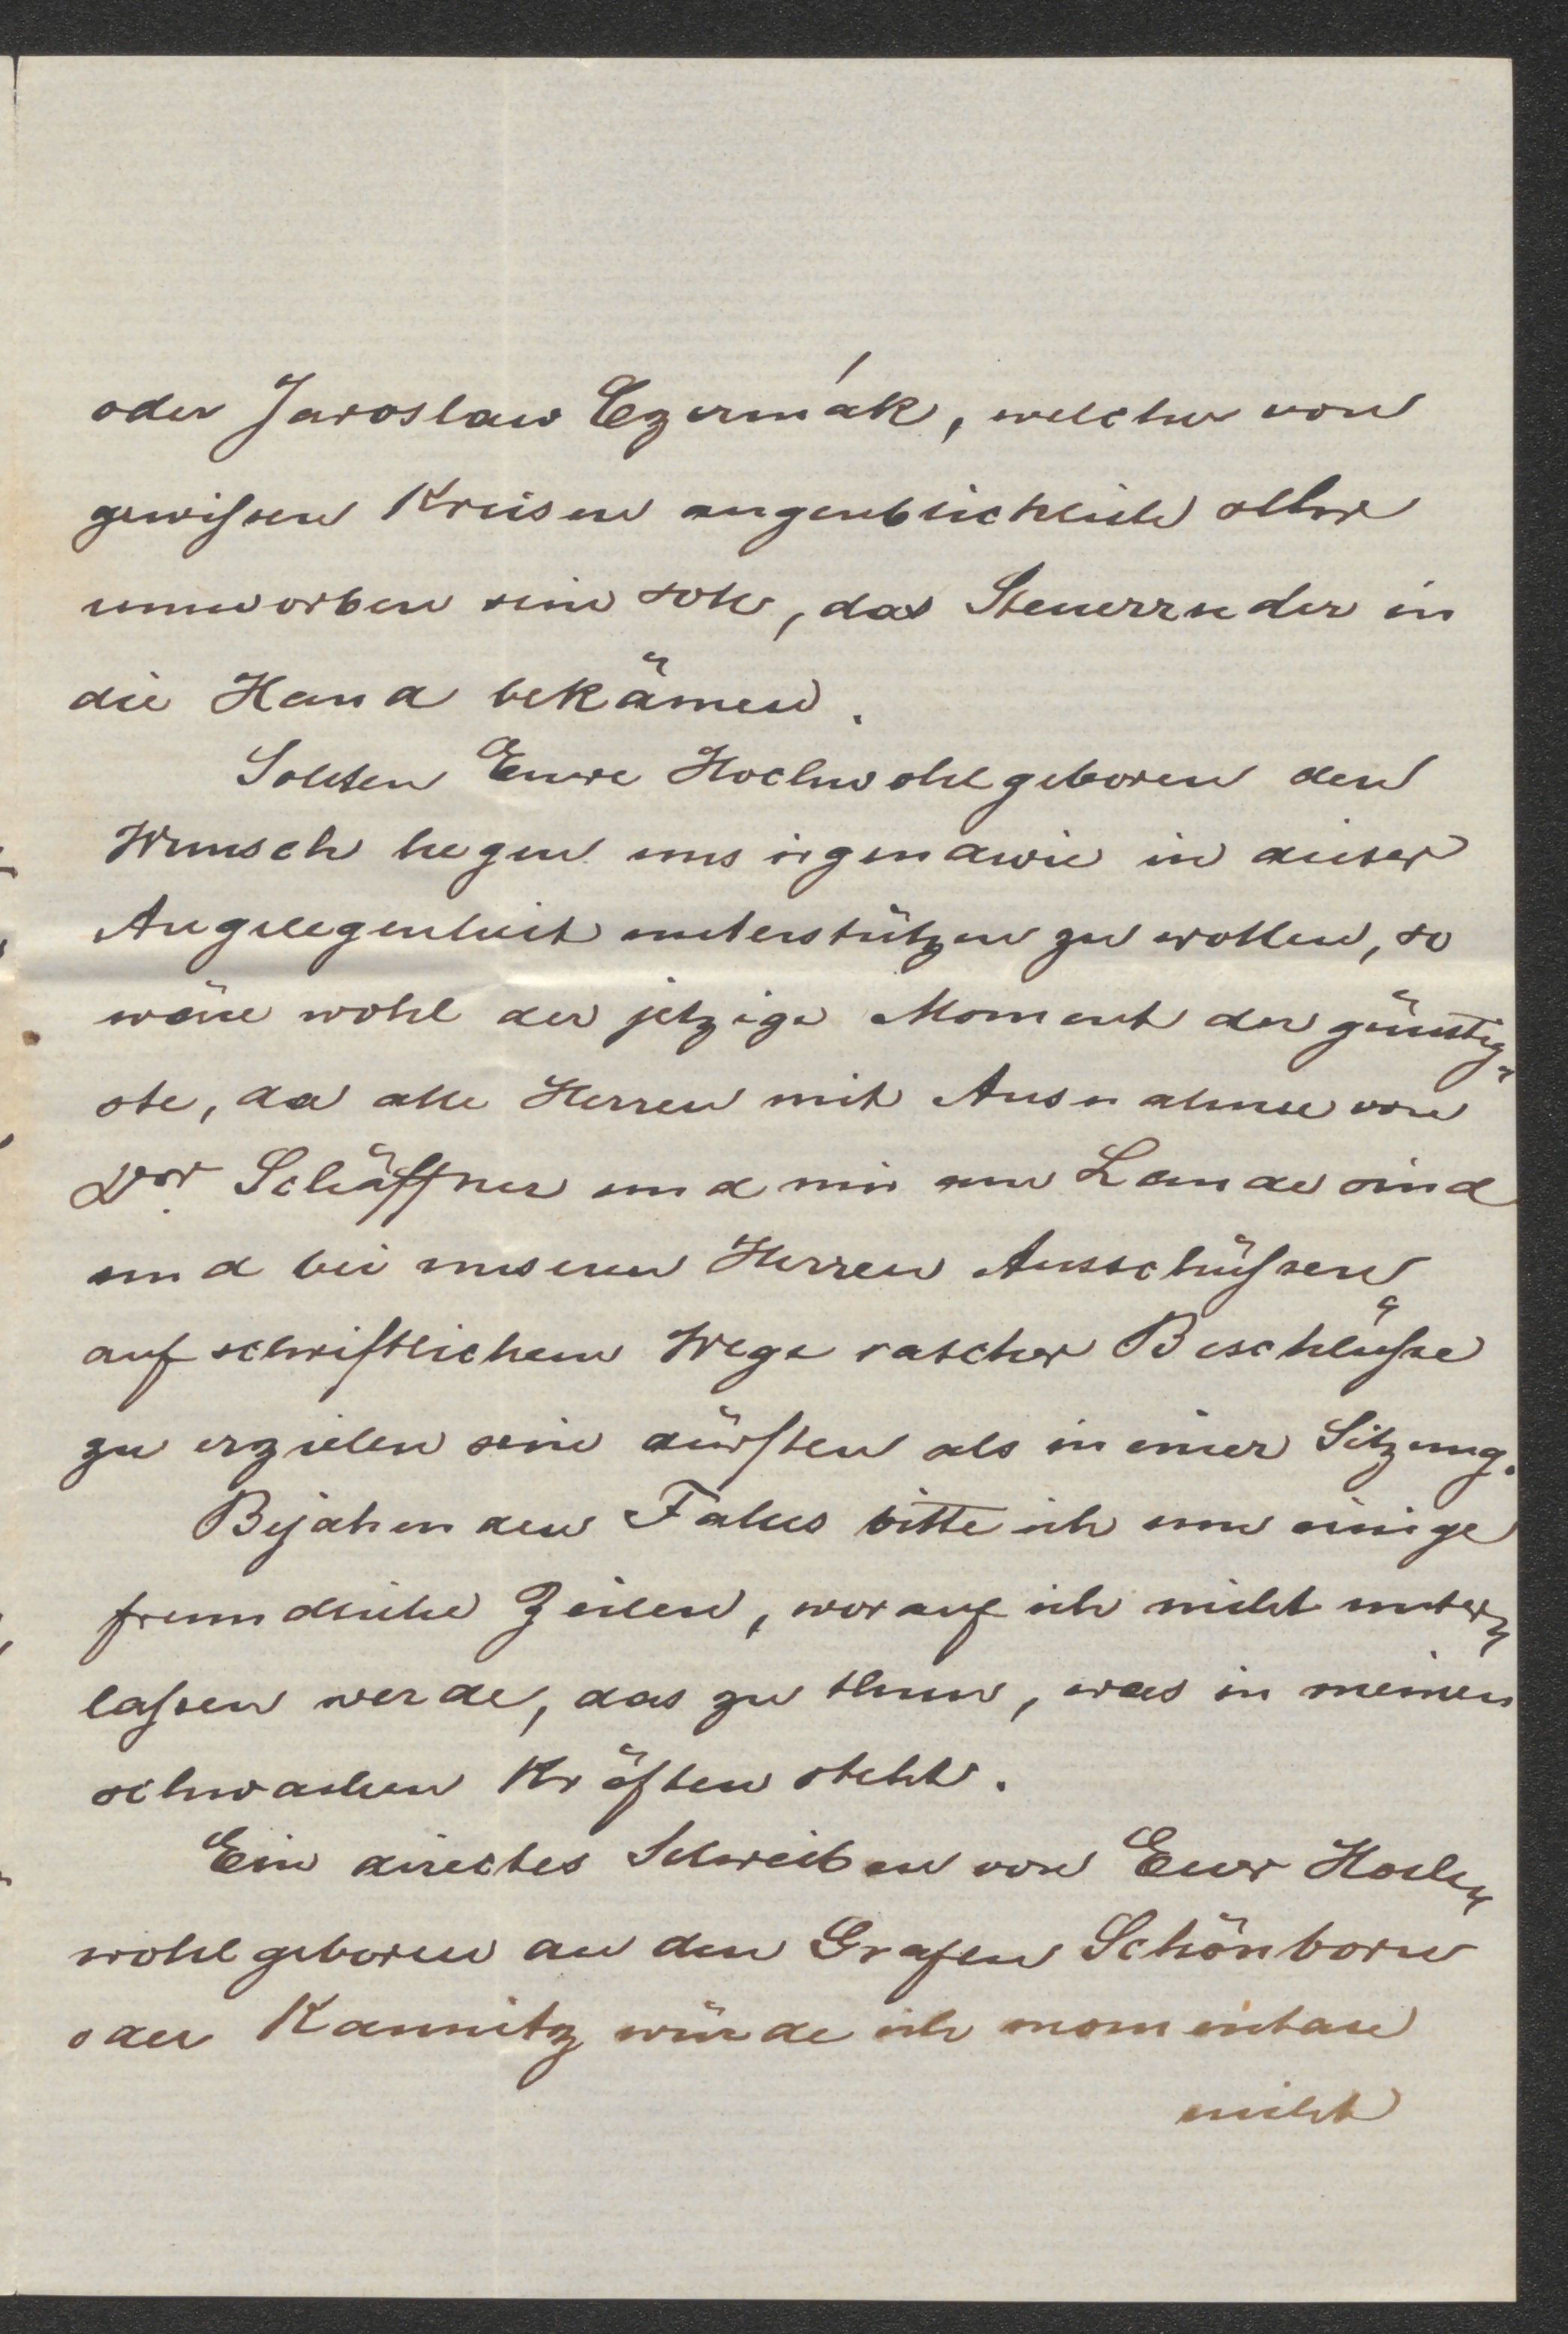 oder Jaroslaw Czermák, welcher von
gewißen Kreisen augenblicklich sehr
umworben sein soll, das Steuerruder in
die Hand bekämen.
Sollten Euere Hochwohlgeboren den
Wunsch hegen uns irgendwie in dieser
Angelegenheit unterstützen zu wollen, so
wäre wohl der jetzige Moment der günstig-
ste, da alle Herren mit Ausnahme von
Dor Schäffner und mir am Lande sind
und bei unseren Herren Ausschüßen
auf schriftlichem Wege rascher Beschlüße
zu erzielen sein dürften als in einer Sitzung.
Bejahenden Falles bitte ich um einige
freundliche Zeilen, worauf ich nicht unter-
laßen werde, das zu thun, was in meinen
schwachen Kräften steht.
Ein directes Schreiben von Euer Hoch-
wohlgeboren an den Grafen Schönborn
oder Kaunitz würde ich momentan
nicht